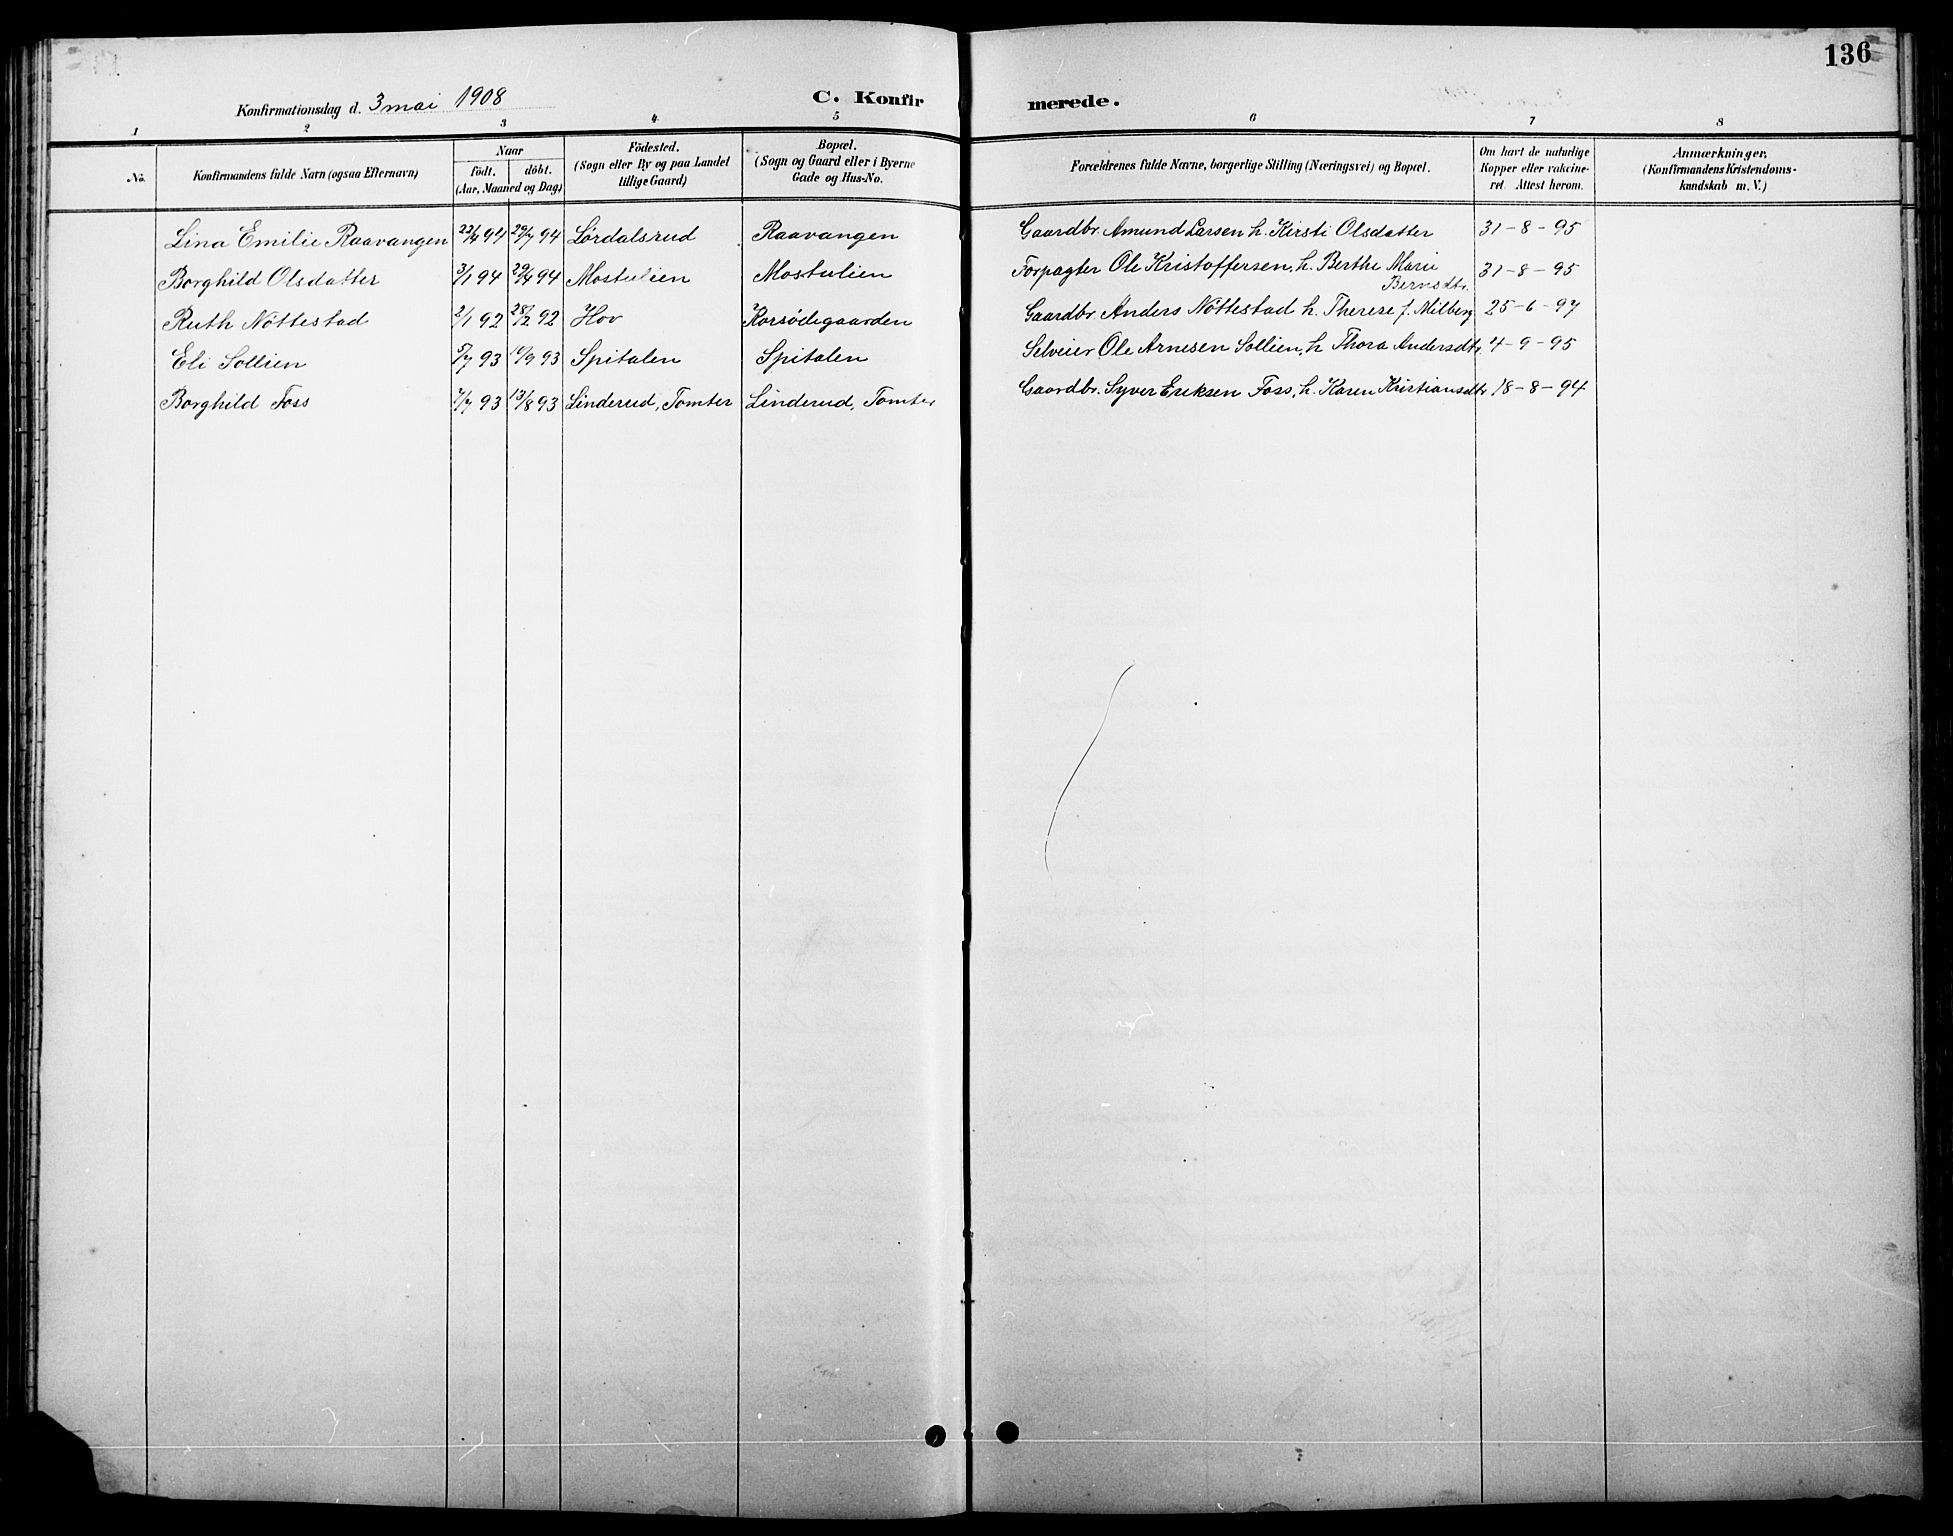 136
Konfirmationsdag d. 3 mai 1908
C. Konfirmerede.
1 2 3 4 5 6 7 8
No.
Konfirmandens fulde Navn (ogsaa Efternavn)
Naar
født. døbt.
(Aar, Maaned og Dag)
Födested.
(Sogn eller By og paa Landet
tillige Gaard)
Bopæl.
(Sogn og Gaard eller i Byerne
Gade og Hus-No.
Forældrenes fulde Navne, borgerlige Stilling (Næringsvei) og Bopæl.
Om havt de naturlige
Kopper eller vakcine-
ret. Attest herom.
Anmærkninger.
(Konfirmandens Kristendoms-
kundskab m. V.)
Lina Emilie Raavangen 22/4 94 29/7 94 Lørdalsrud Raavangen Gaardbr. Amund Larsen h. Kirsti Olsdatter 31-8-95
Borghild Olsdatter 3/1 94 29/4 94 Mostulien Mostulien Forpagter Ole Kristoffersen, h. Berthe Marie Berntsdtr. 31-8-95
Ruth Nöttestad 2/1 92 28/2 92 Hov Korsödegaarden Gaardbr. Anders Nöttestad h. Therese f. Milberg 25-6-97
Eli Sollien 5/7 93 10/9 93 Spitalen Spitalen Selveier Ole Arnesen Sollien, h Thora Andersdtr. 4-9-95
Borghild Foss 7/7 93 13/8 93 Linderud, Tomter Linderud, Tomter Gaardbr. Syver Eriksen Foss, h. Karen Kristiansdtr 18-8-94